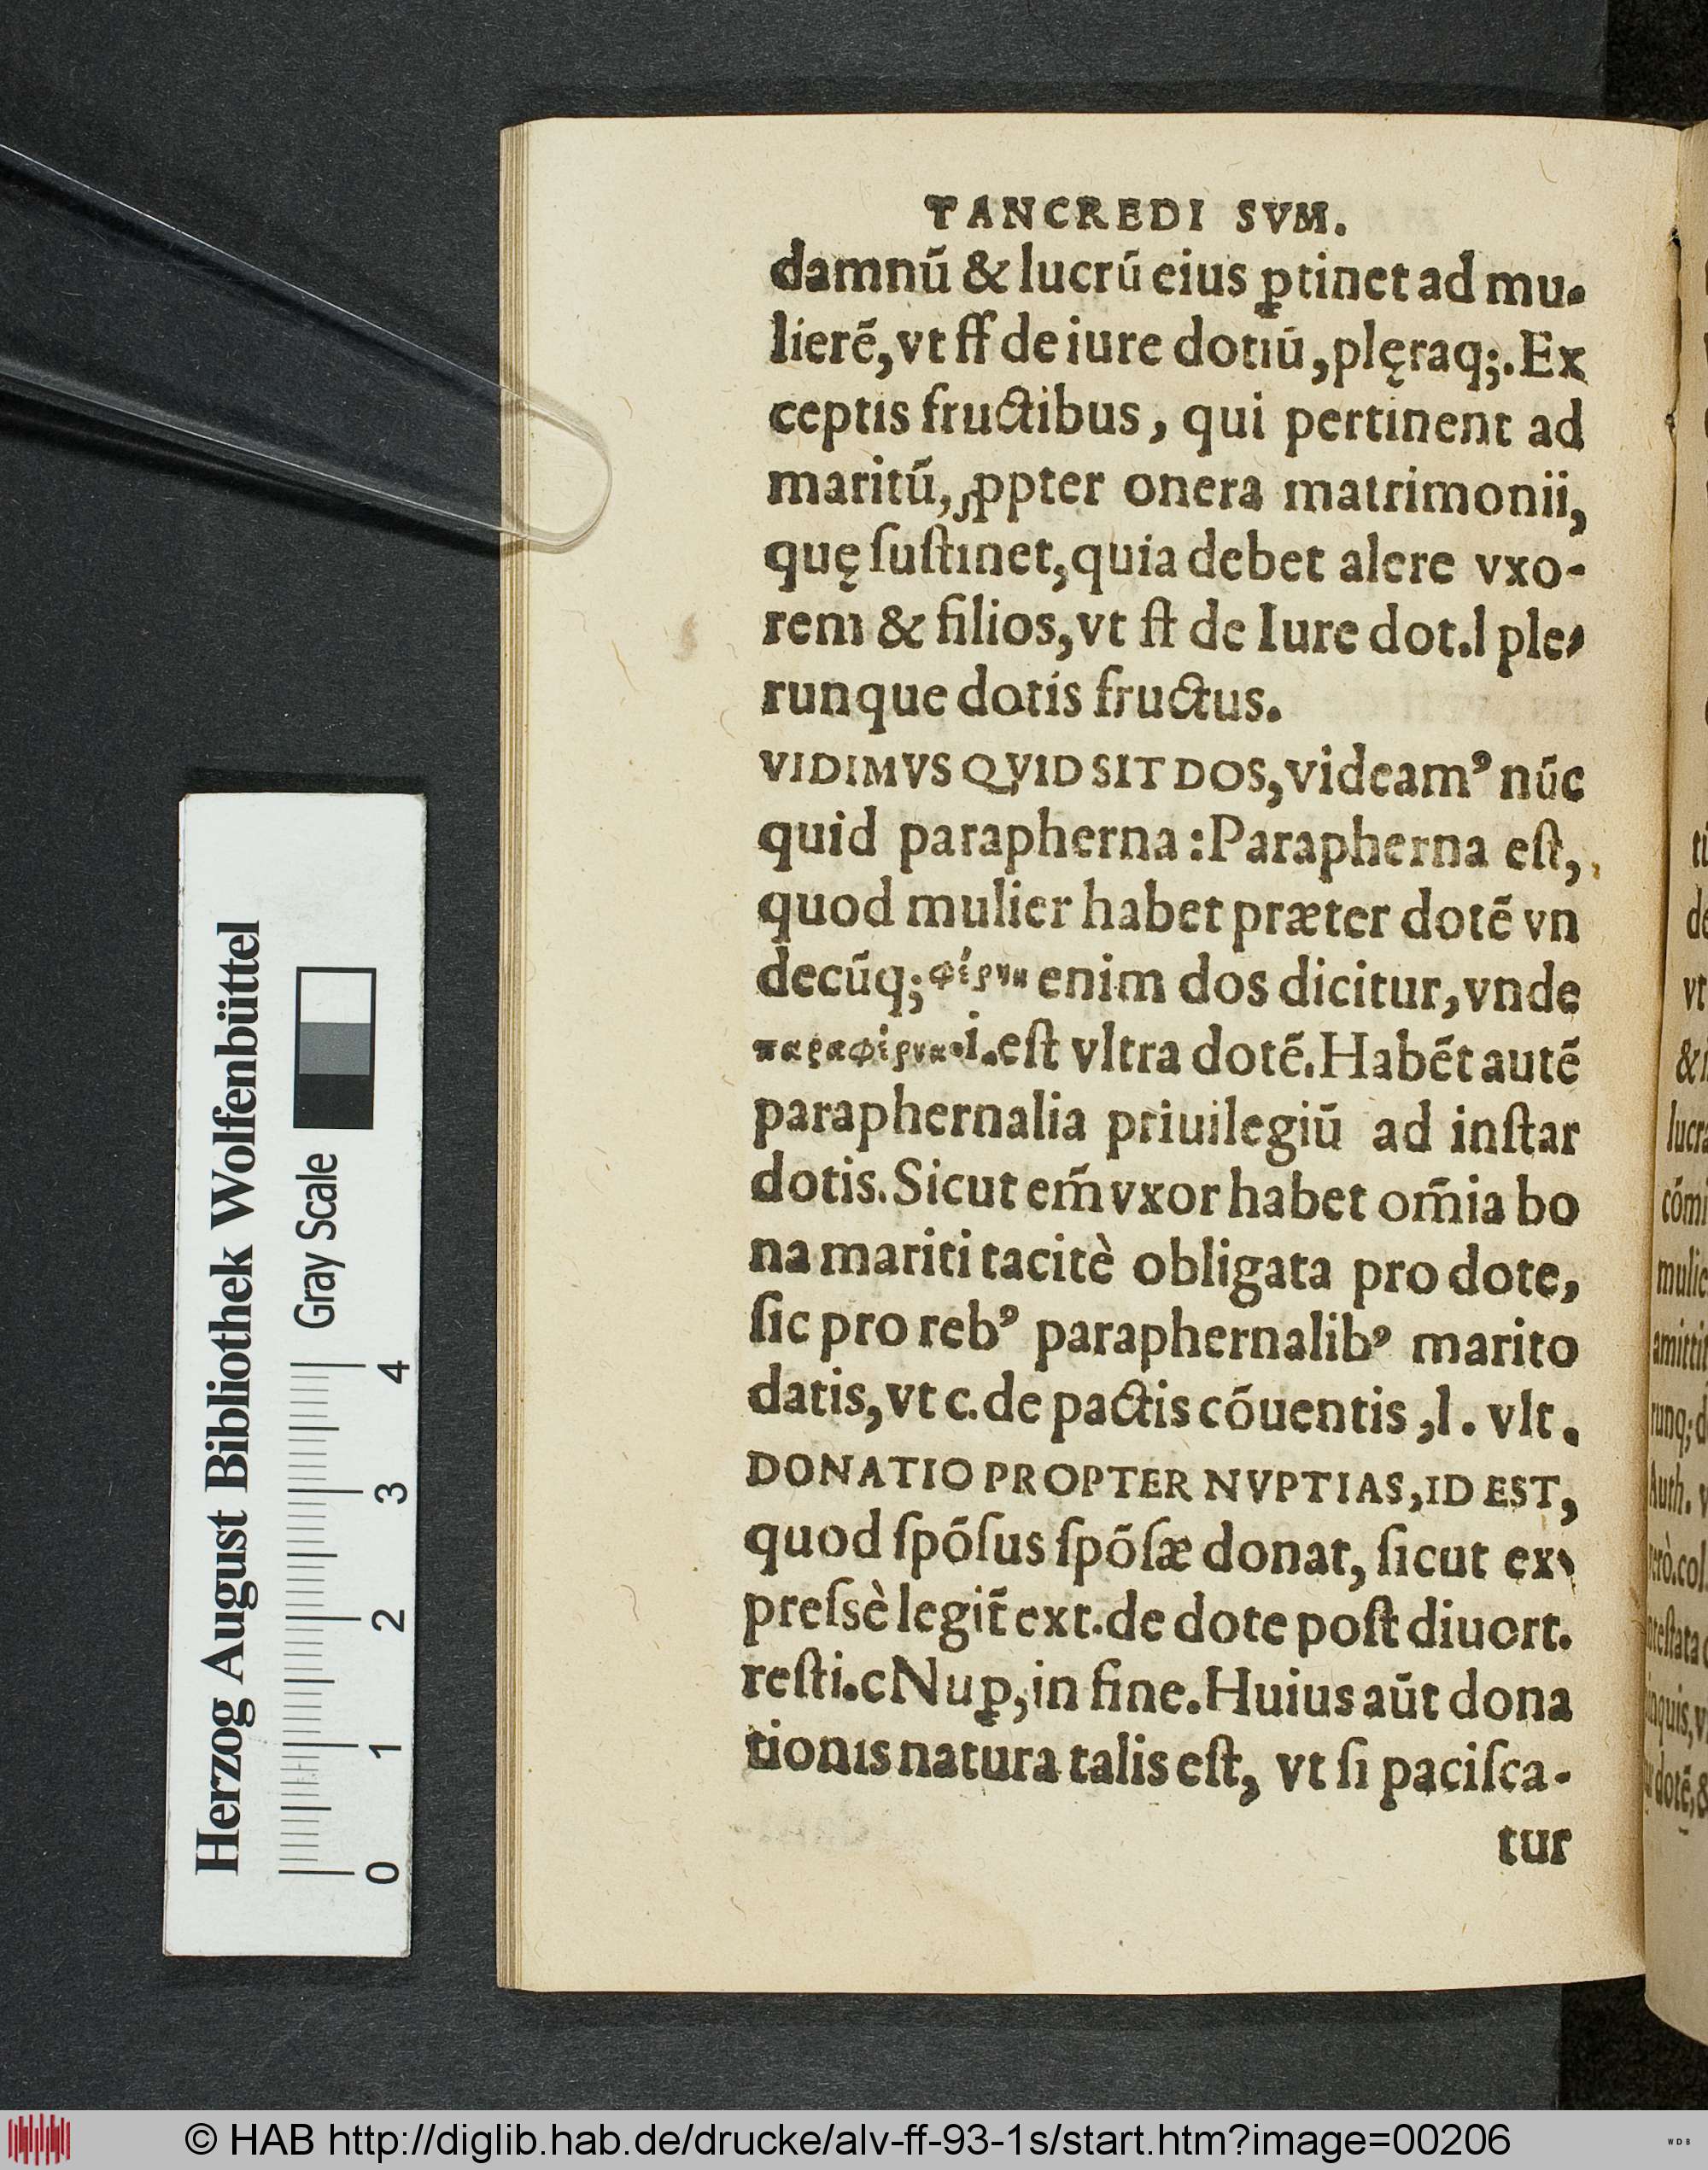 TANCREDI SVM.
damnũ & lucrũ eius ꝑtinet ad mu-
lierẽ, vt ff de iure dotiũ, plęraq;. Ex
ceptis fructibus, qui pertinent ad
maritũ, ꝓpter onera matrimonii,
quę ſuſtinet, quia debet alere vxo-
rem & filios, vt ff de Iure dot. l ple-
runque dotis fructus.
VIDIMVS QVID SIT DOS, videamꝰ nũc
quid parapherna: Parapherna eſt,
quod mulier habet præter dotẽ vn
decũq; φέρνη enim dos dicitur, vnde
παραφέρνα .i. eſt vltra dotẽ. Habẽt autẽ
paraphernalia priuilegiũ ad inſtar
dotis. Sicut em̃ vxor habet om̃ia bo
na mariti tacitè obligata pro dote,
ſic pro rebꝰ paraphernalibꝰ marito
datis, vt c. de pactis cõuentis, l. vlt.
DONATIO PROPTER NVPTIAS, ID EST,
quod ſpõſus ſpõſæ donat, ſicut ex-
preſsè legit̃ ext. de dote poſt diuort.
reſti. c Nuꝑ, in fine. Huius aũt dona
tionis natura talis eſt, vt ſi paciſca-
tur
Herzog August Bibliothek Wolfenbüttel
Gray Scale
0 1 2 3 4
© HAB http://diglib.hab.de/drucke/alv-ff-93-1s/start.htm?image=00206